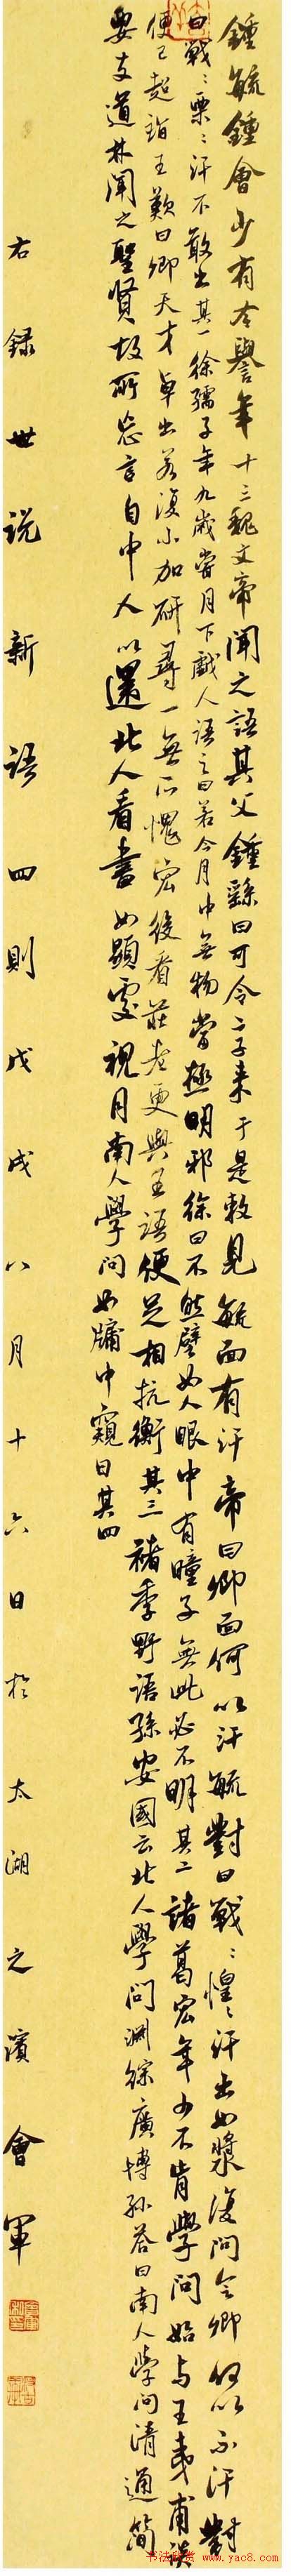 鍾毓鍾會少有令譽年十三魏文帝聞之語其父鍾繇曰可令二子来于是敕見毓面有汗帝曰卿面何以汗毓對曰戰〻惶〻汗出如漿復問會卿何以不汗對
曰戰〻栗〻汗不敢出其一徐孺子年九歲嘗月下戲人語之曰若令月中無物當極明邪徐曰不然譬如人眼中有瞳子無此必不明其二諸葛宏年少不肯學問始与王夷甫談
便已超詣王歎曰卿天才卓出若復小加研尋一無所愧宏後看莊老更與王語便足相抗衡其三褚季野語孫安國云北人學问淵綜廣博孙答曰南人學问清通简
要支道林闻之聖賢故所忘言自中人以還北人看書如顯處視月南人學问如牖中窺日其四
右録世説新語四則戊戌八月十六日於太湖之濱會軍
书法欣赏 www.yac8.com